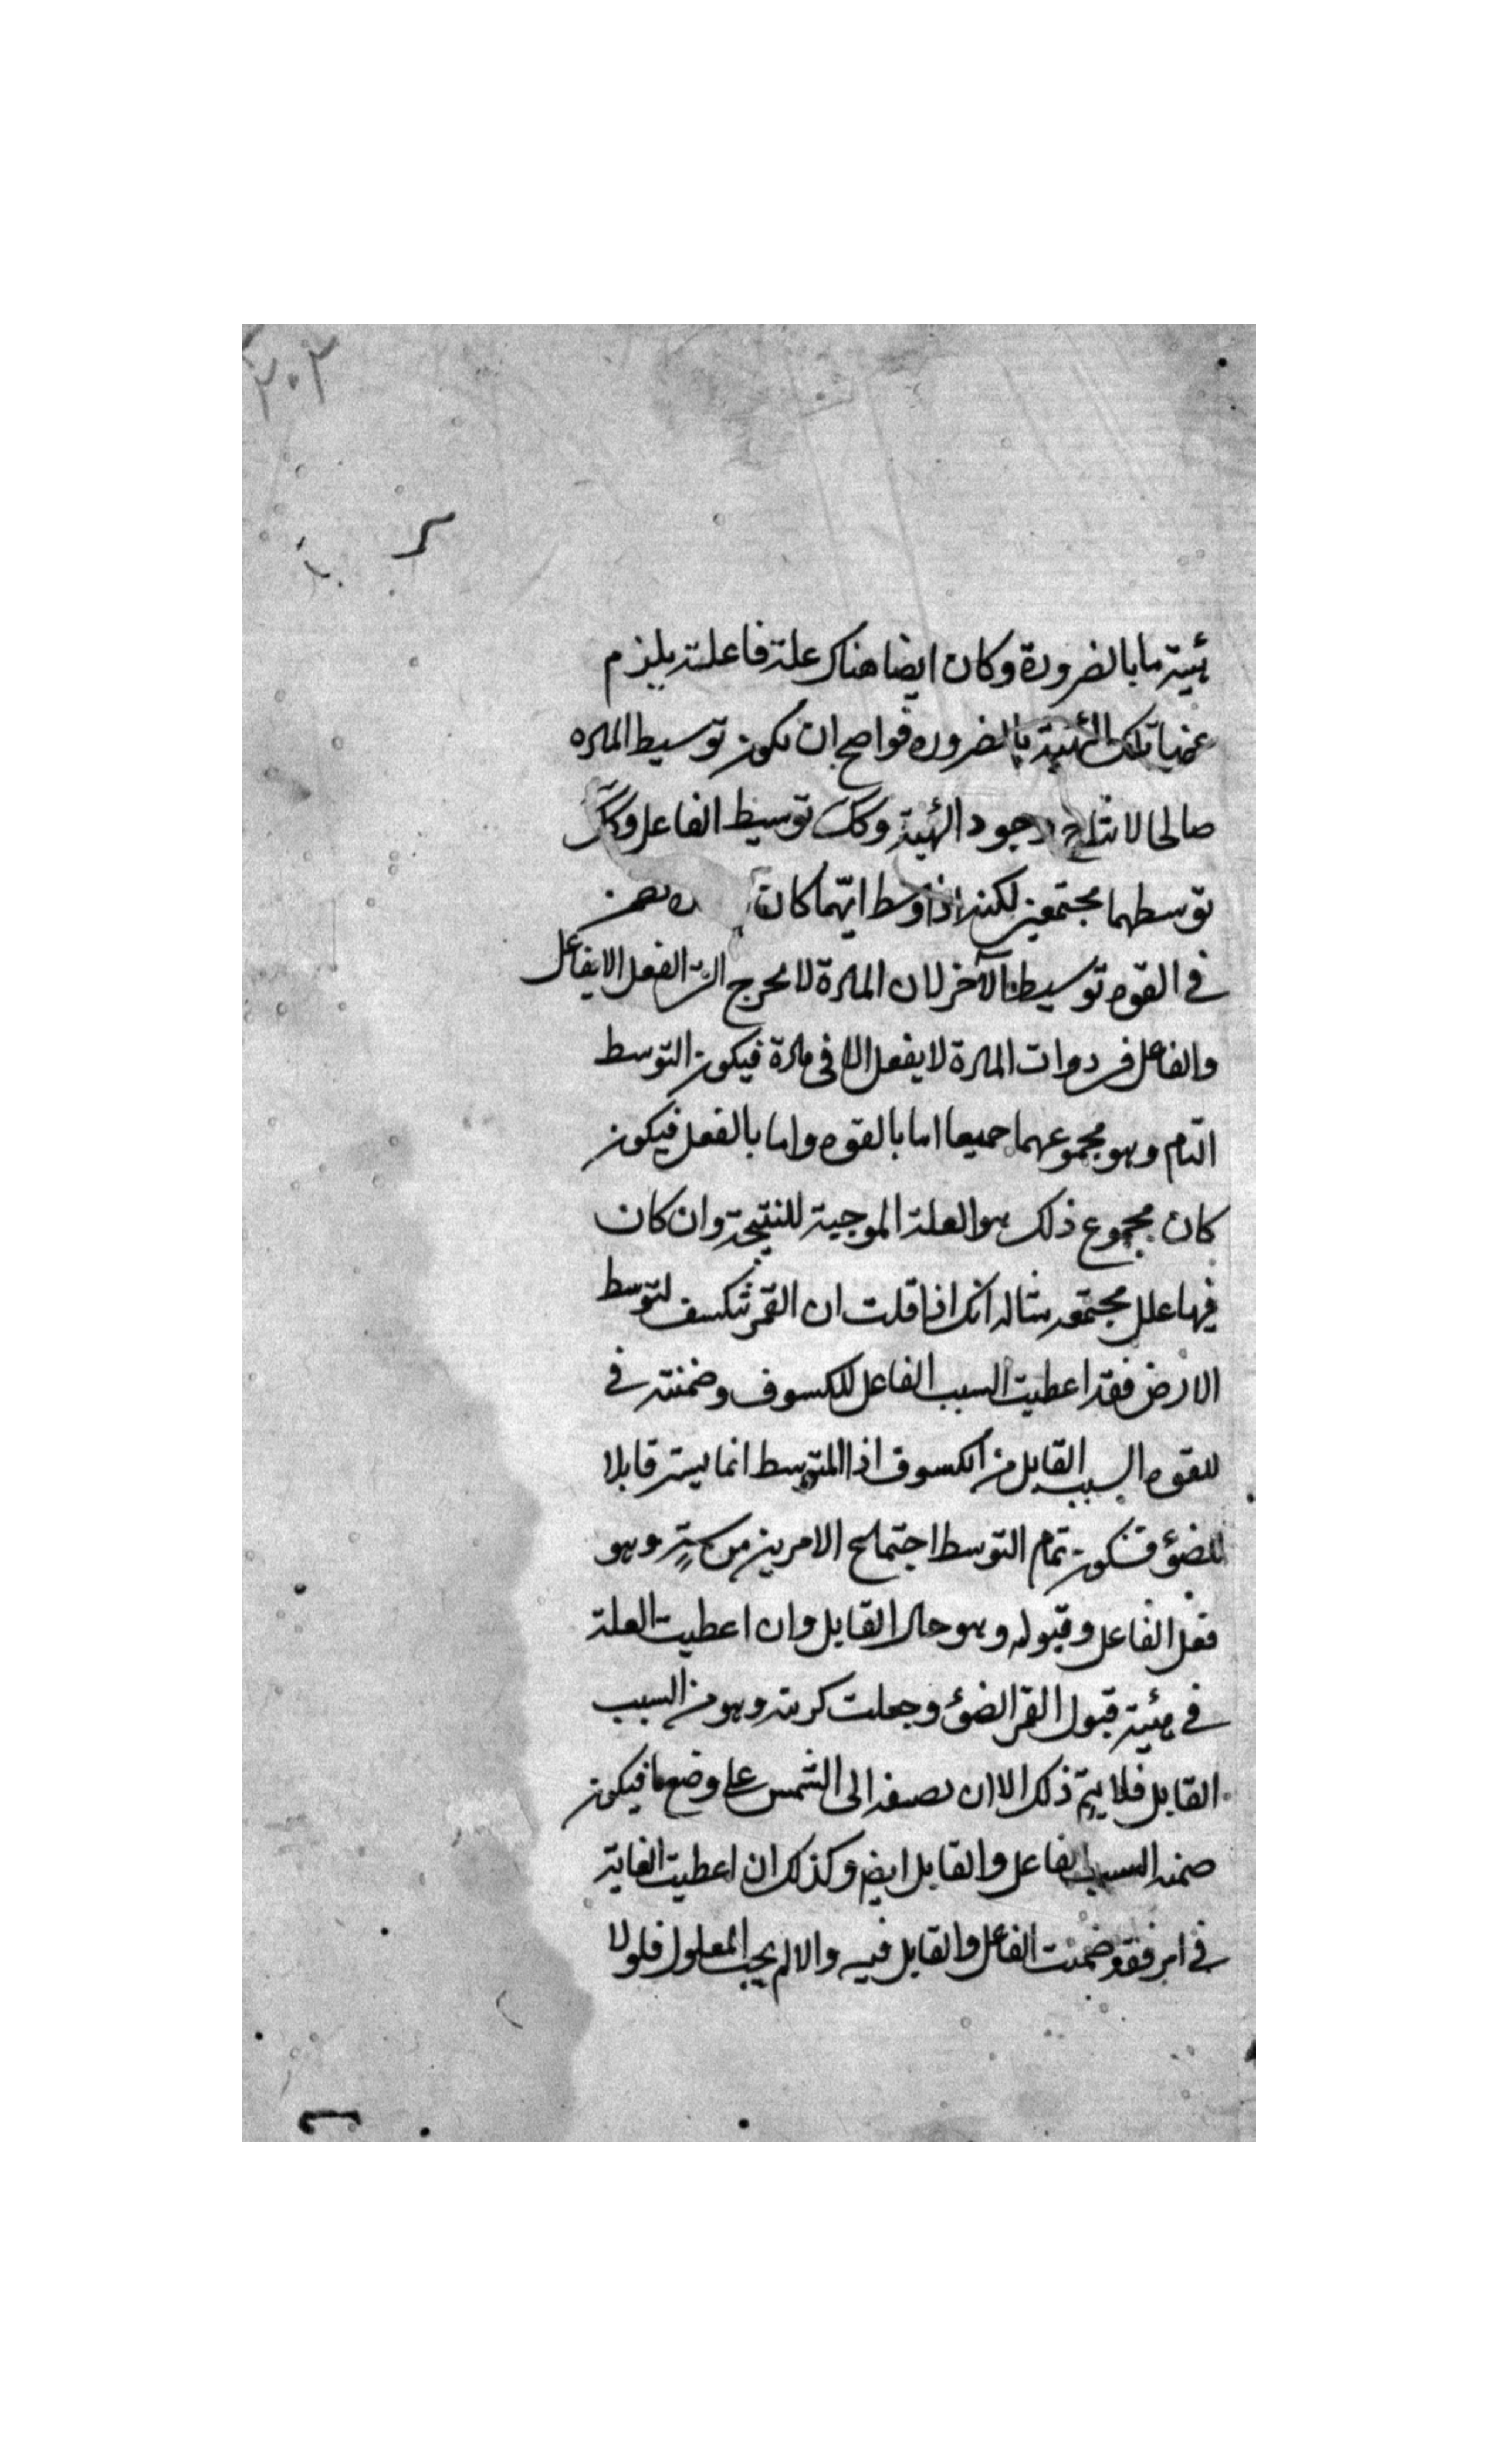 ٢٠٢
هيئة ما بالضرورة وكان ايضا هناك علة فاعلة يلزم
عنها تلك الهيئة بالضروره فواضح ان يكون توسيط الماده
صالحا لانتاج وجود الهيئة وكك توسيط الفاعل وكك
توسطهما مجتمعين لكنه اذا وسط ايهما كان
في القوه توسيط الآخر لان المادة لا يخرج الى الفعل الا بفاعل
والفاعل في ذوات المادة لا يفعل الا في مادة فيكون التوسط
التام وهو مجموعهما جميعا اما بالقوه واما بالفعل فيكون
كان مجموع ذلك هو العلة الموجبة للنتيجة وان كان
فيها علل مجتمعه مثاله انك اذا قلت ان القمر تنكسف لتوسط
الارض فقد اعطيت السبب الفاعل للكسوف وضمنته في
للقوه السبب القابل من الكسوف اذ المتوسط انما يستر قابلا
للضؤ فتكون تمام التوسط اجتماع الامرين من ستر وهو
فعل الفاعل وقبوله وهو حال القابل وان اعطيت العلة
في هيئة قبول القمر الضؤ وجعلت كريته وهو من السبب
القابل فلا يتم ذلك الا ان تضيفه الى الشمس على وضع ما فيكون
ضمنه السبب الفاعل والقابل ايضا وكذلك ان اعطيت الغاية
في امر فقد ضمنت الفاعل والقابل فيه والا لم يجب المعلول فلولا